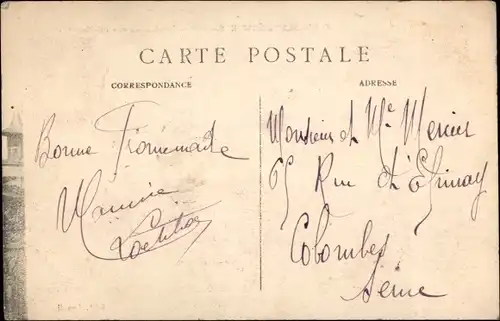 CARTE POSTALE
CORRESPONDANCE
ADRESSE
Bonne Promenade
Monsieur et Me Mercier
65 Rue d'Epinay
Colombes
Seine